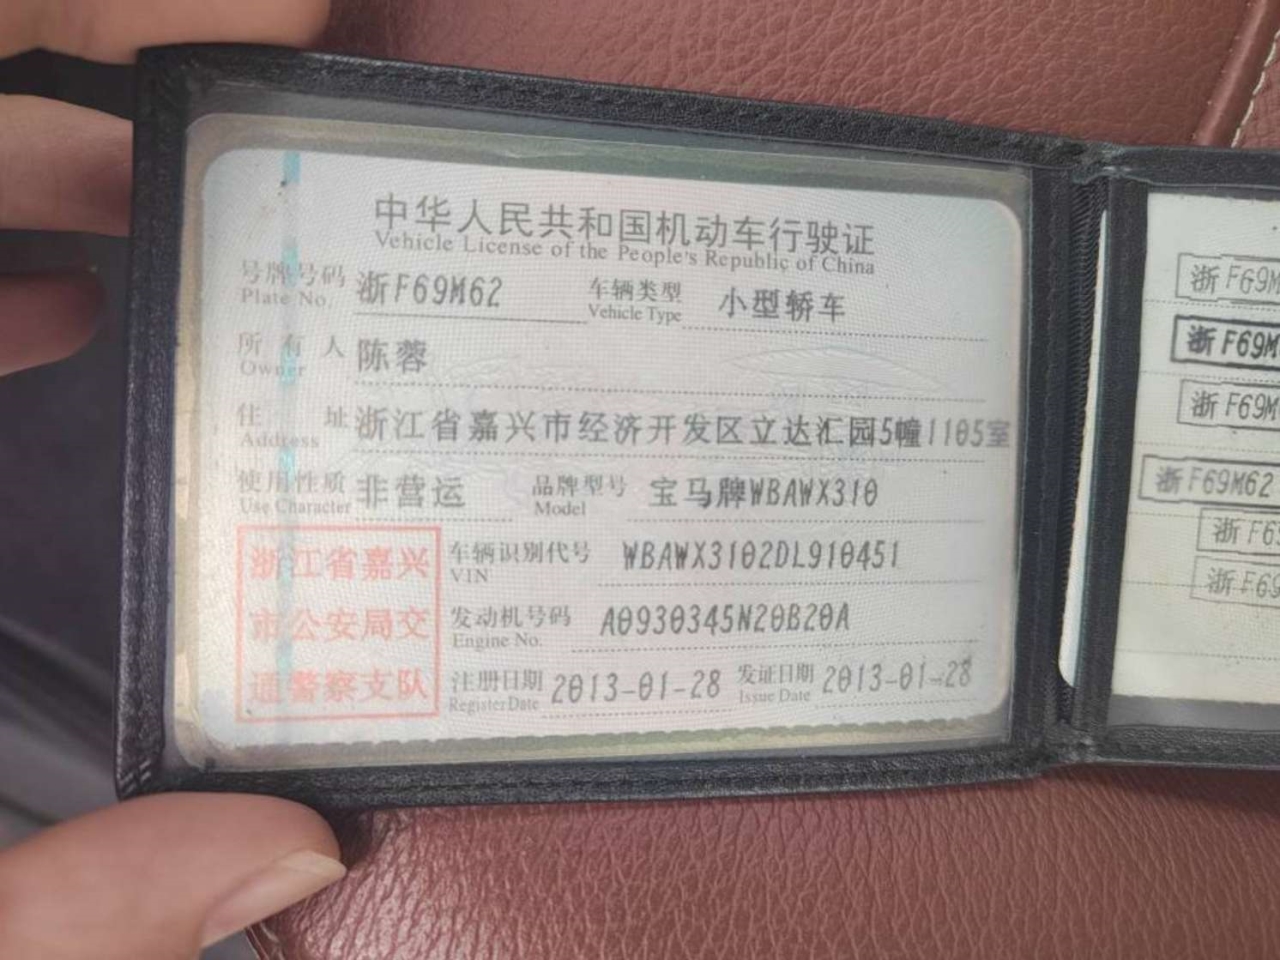 中华人民共和国机动车行驶证
Vehicle License of the People's Republic of China
号牌号码 浙F69M62 车辆类型 小型轿车
Plate No. Vehicle Type
所有人 陈蓉
Owner
住址 浙江省嘉兴市经济开发区立达汇园5幢1105室
Address
使用性质 非营运 品牌型号 宝马牌WBAWX310
Use Character Model
浙江省嘉兴
市公安局交
通警察支队
车辆识别代号 WBAWX3102DL910451
VIN
发动机号码 A0930345N20B20A
Engine No.
注册日期 2013-01-28 发证日期 2013-01-28
Register Date Issue Date
浙F69M
浙F69M
浙F69M
浙F69M62
浙F6
浙F69